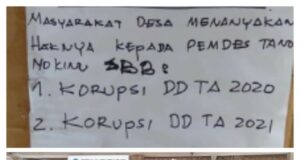 MASYARAKAT DESA MENANYAKAN
HAKNYA KEPADA PEMDES TANO
NOKINU SBB:
1. KORUPSI DD TA 2020
2. KORUPSI DD TA 2021